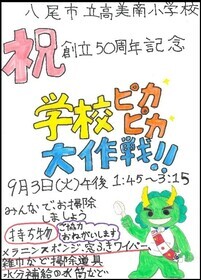 八尾市立高美南小学校
祝 創立50周年記念
学校ピカピカ
大作戦!!
9月3日(火)午後 1:45~3:15
みんなでお掃除
しましょう
持ち物 ご協力おねがいします
メラニンスポンジ・窓ふきワイパー
雑巾など掃除道具
水分補給の水筒など